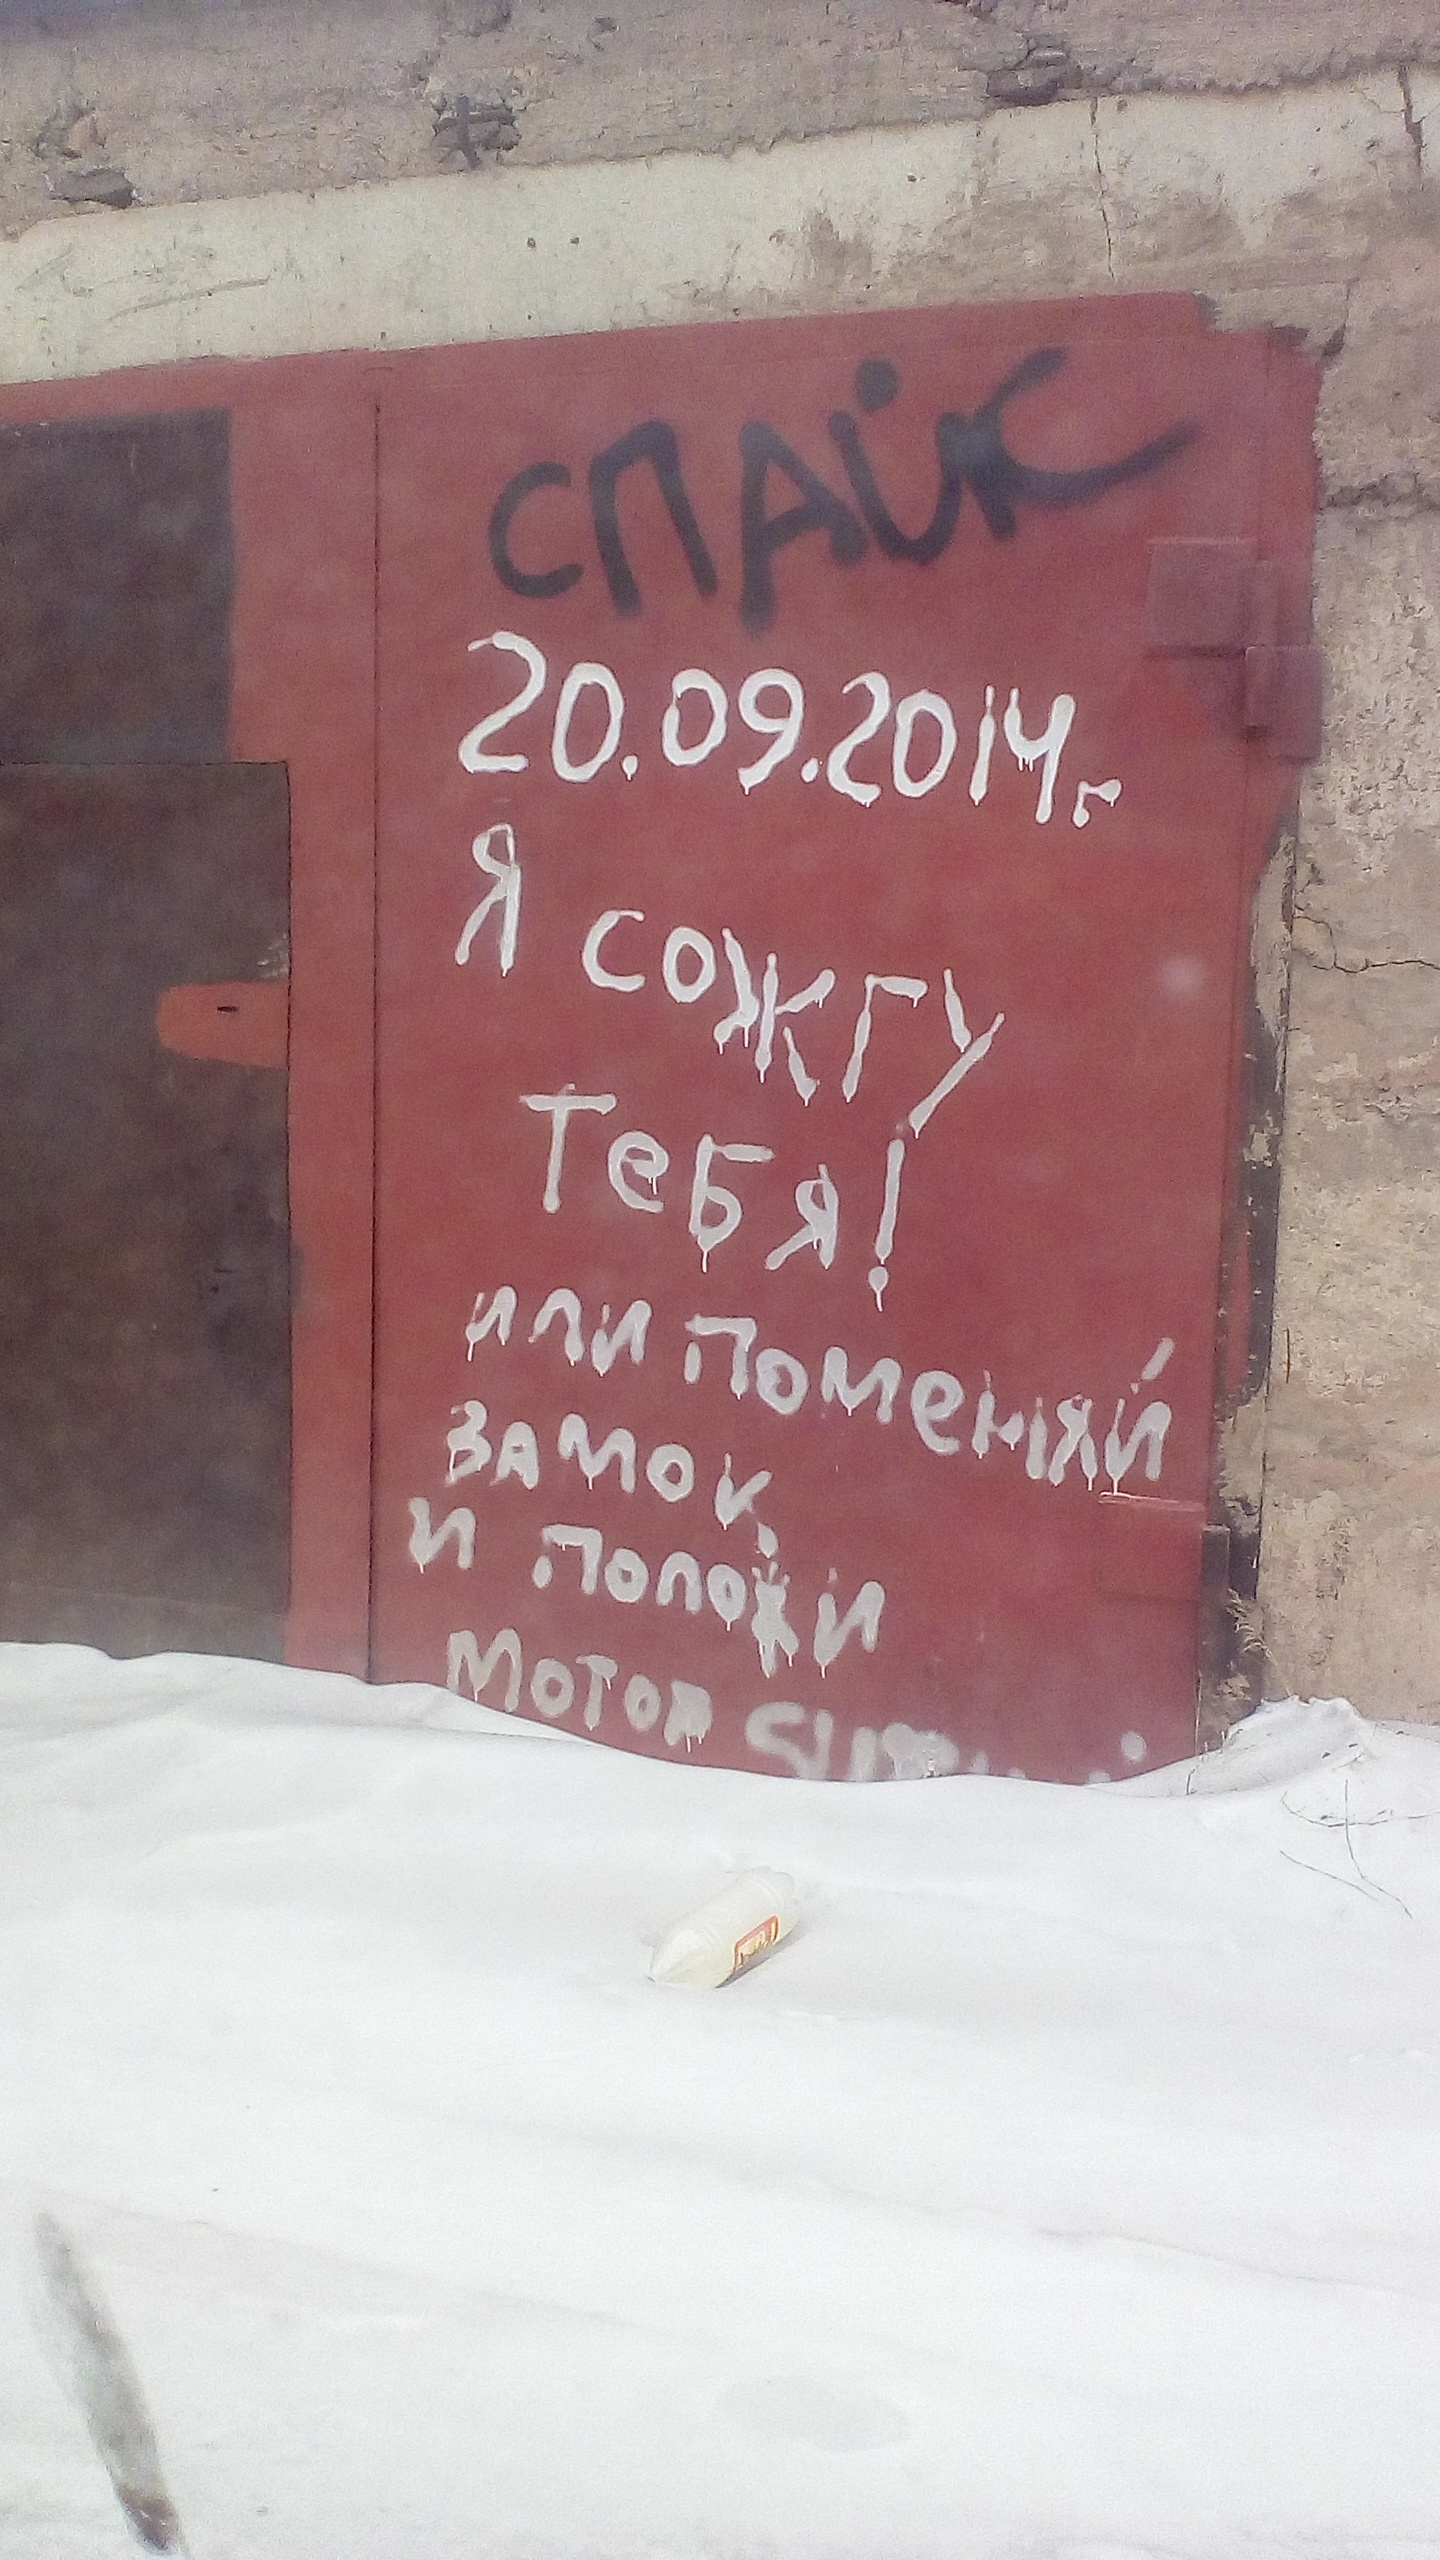 СПАЙК
20.09.2014г
Я СОЖГУ
ТеБЯ!
или Поменяй
ЗАМОК,
и Положи
МОТОР